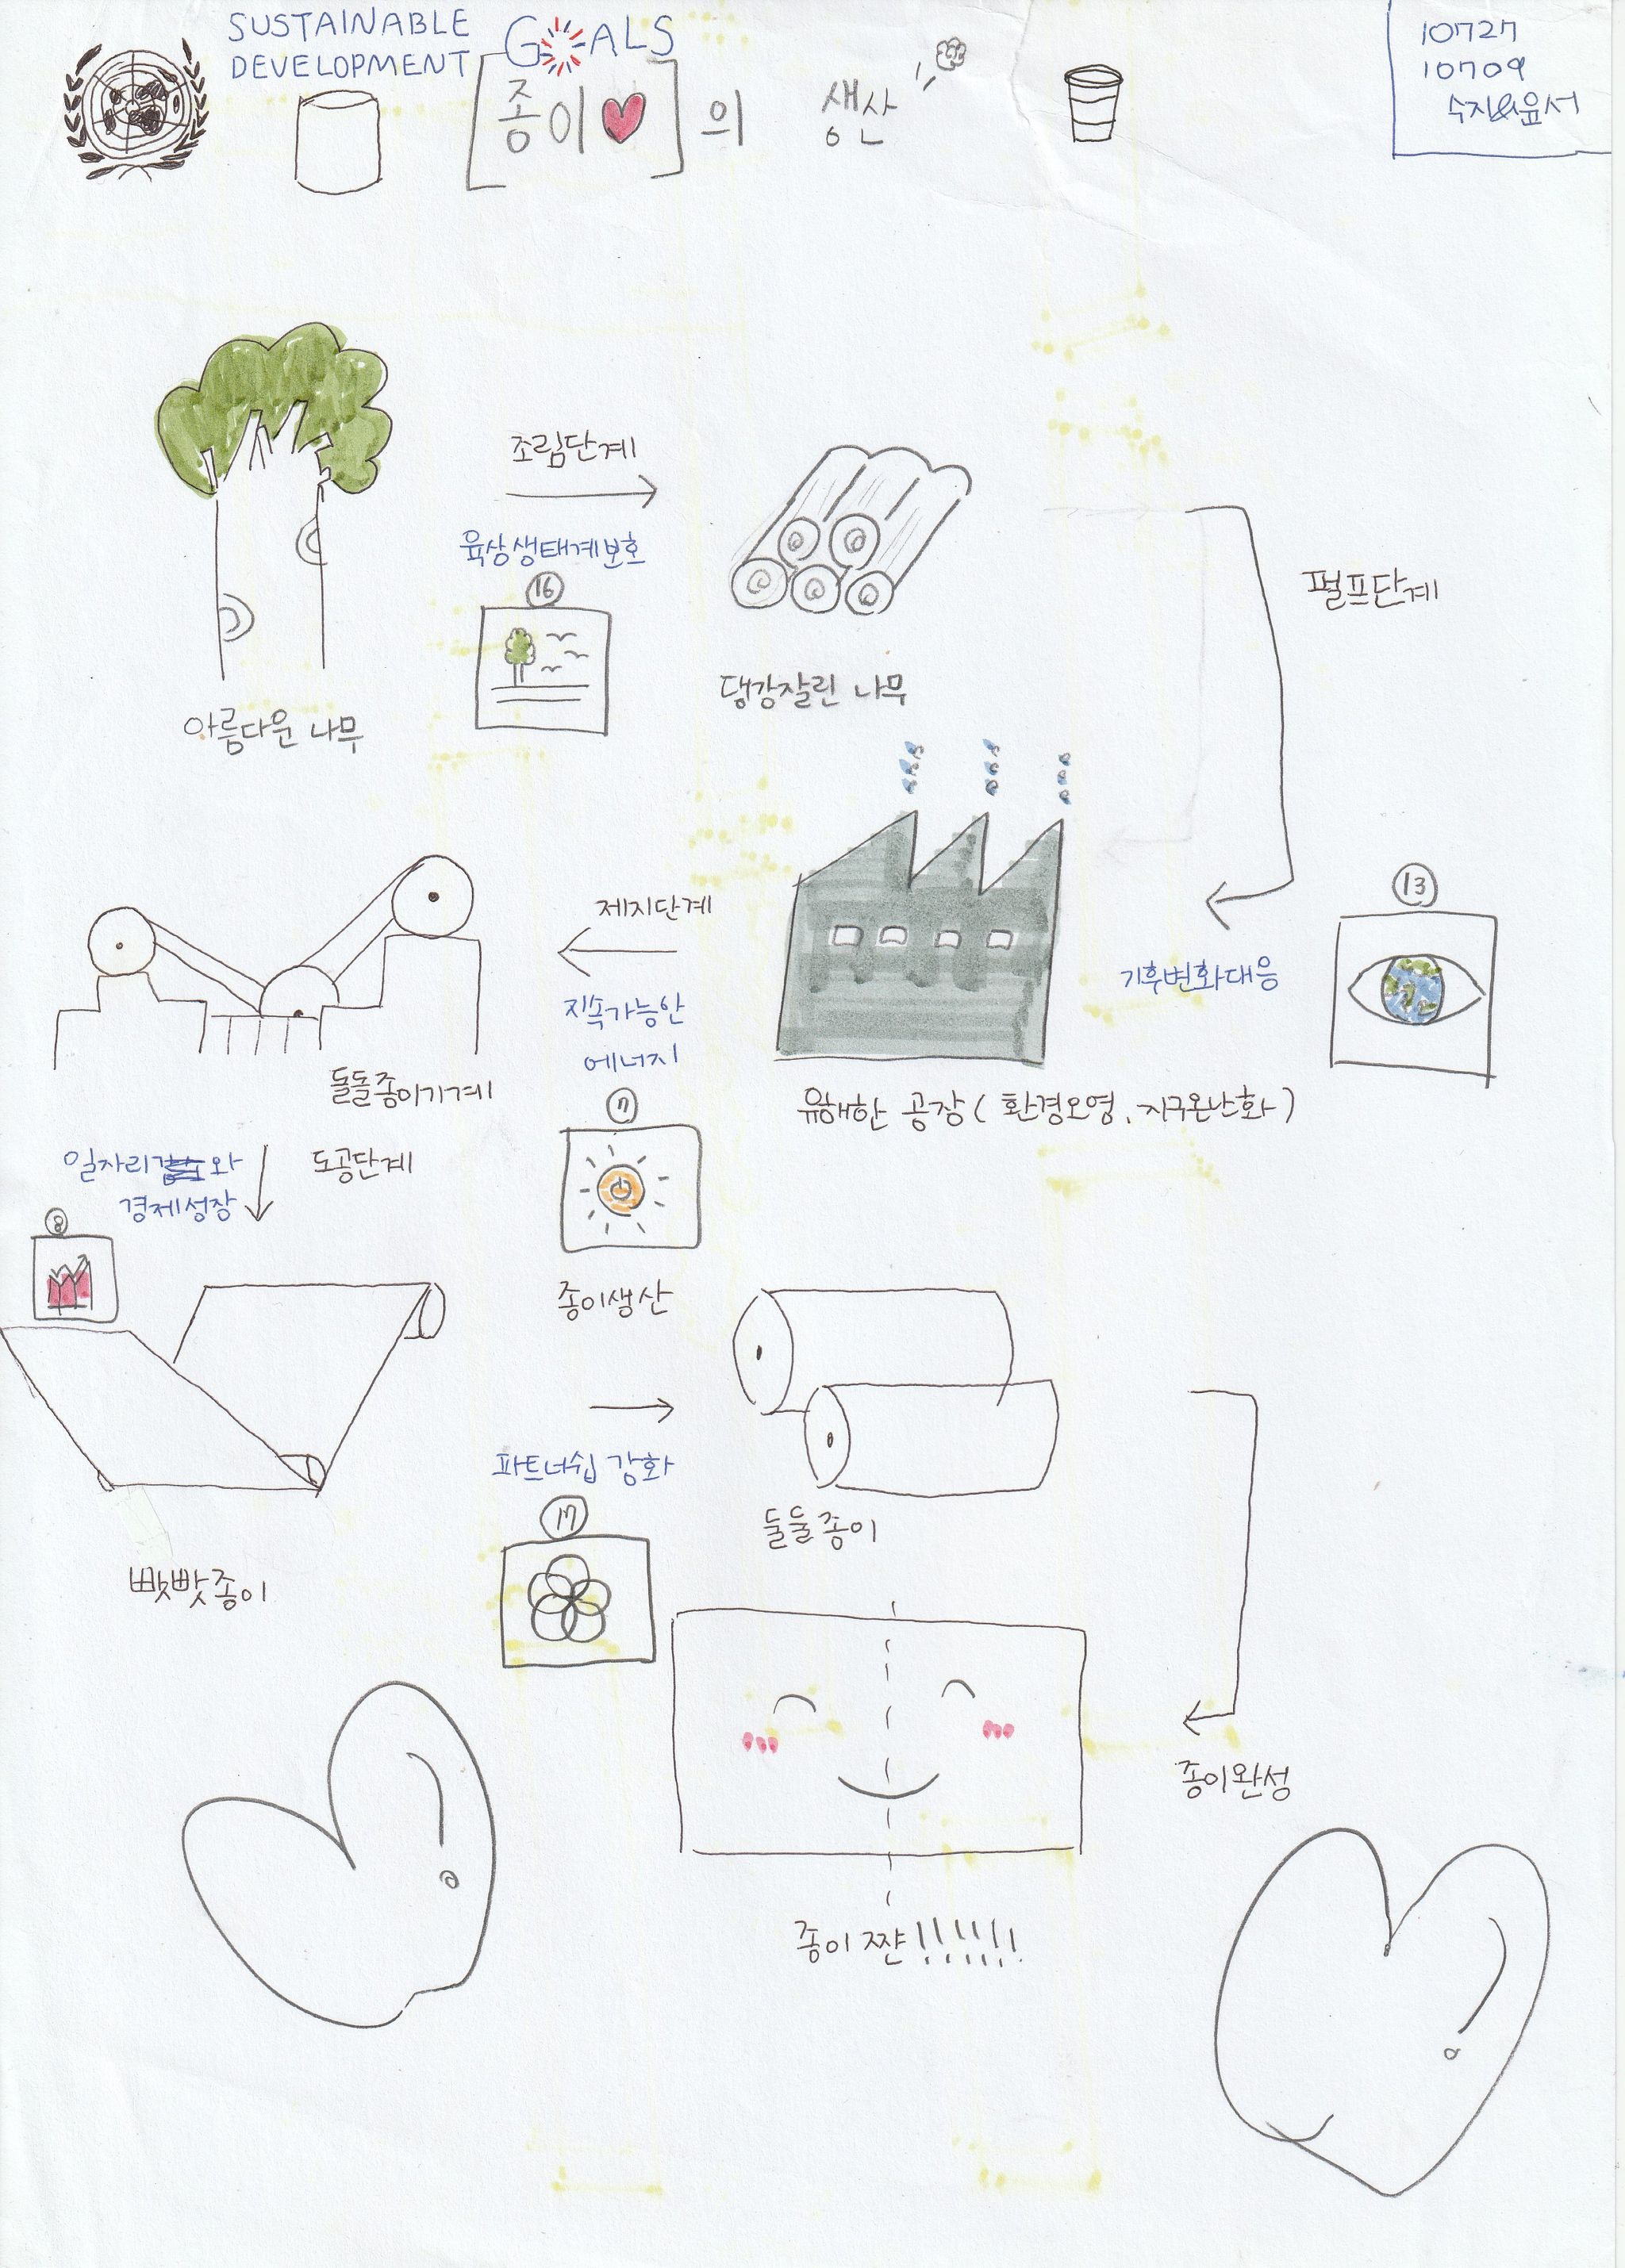 SUSTAINABLE
DEVELOPMENT GOALS
[종이♥]의 생산
10727
10709
수지&윤서
조림단계
육상생태계보호
16
아름다운 나무
댕강잘린 나무
펄프단계
13
기후변화대응
유해한 공장(환경오염, 지구온난화)
제지단계
지속가능한
에너지
7
돌돌종이기계
도공단계
일자리 와
경제성장
8
종이생산
파트너쉽 강화
17
둘둘종이
빳빳종이
종이완성
종이 쨘!!!!!!